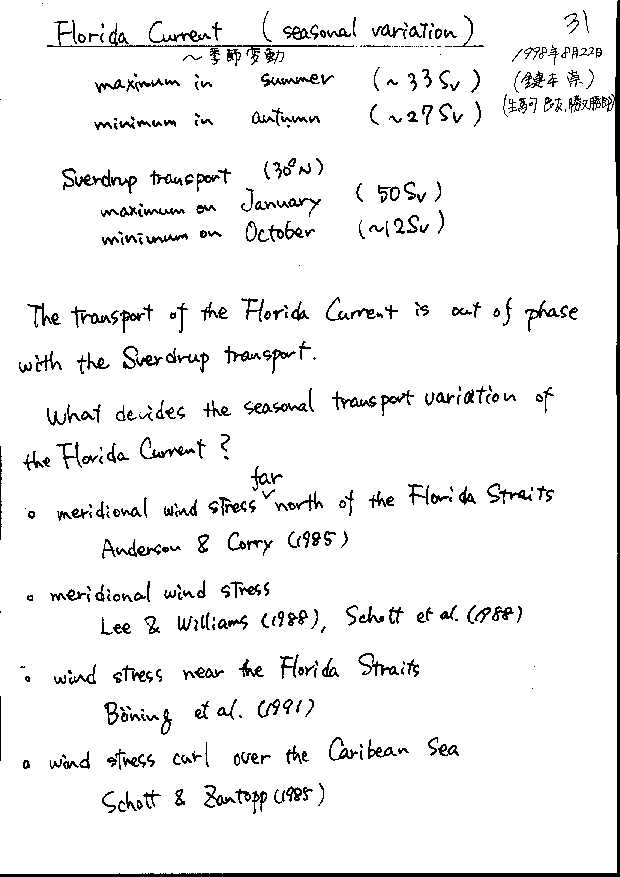 31
Florida Current (seasonal variation)
~季節変動
1998年8月22日
maximum in summer (~33Sv)
minimum in autumn (~27Sv)
Sverdrup transport (30°N)
maximum on January (50Sv)
minimum on October (~12Sv)
The transport of the Florida Current is out of phase
with the Sverdrup transport.
What decides the seasonal transport variation of
the Florida Current?
far
◦ meridional wind stress north of the Florida Straits
Anderson & Corry (1985)
◦ meridional wind stress
Lee & Williams (1988), Schott et al. (1988)
◦ wind stress near the Florida Straits
Böning et al. (1991)
◦ wind stress curl over the Caribean Sea
Schott & Zantopp (1985)